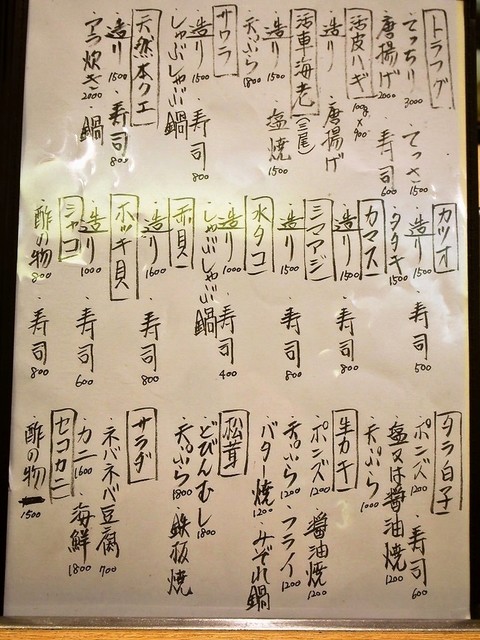 トラフグ
・てっちり 3000 ・てっさ 1500
・唐揚げ 2000 ・寿司 600
活皮ハギ 100g×900
・造り ・唐揚げ
活車海老(三尾)
・造り 1500 ・塩焼 1500
・天ぷら 1800
サワラ
・造り 1500 ・寿司 800
・しゃぶしゃぶ鍋
天然本クエ
・造り 1500 ・寿司 800
・アラ炊き 2000 ・鍋
カツオ
・造り 1500 ・寿司 500
・タタキ 1500
カマス
・造り 1500 ・寿司 800
シマアジ
・造り 1500 ・寿司 800
水タコ
・造り 1000 ・寿司 400
・しゃぶしゃぶ鍋
赤貝
・造り 1600 ・寿司 800
ホッキ貝
・造り 1000 ・寿司 600
シャコ
・酢の物 800 ・寿司 800
タラ白子
・ポンズ 1200 ・寿司 600
・塩又は醤油焼 1200
・天ぷら 1000
生カキ
・ポンズ 1200 ・醤油焼 1200
・天ぷら 1200 ・フライ 1200
・バター焼 1200 ・みぞれ鍋
松茸
・どびんむし 1800
・天ぷら 1800 ・鉄板焼
サラダ
・ネバネバ豆腐 700
・カニ 1600 ・海鮮 1800
セコカニ
・酢の物 1500